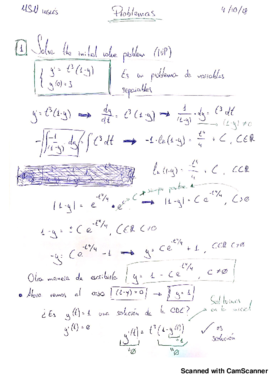 Problemas
1 Solve the initial value problem (IVP)
{ y' = t³(1-y)
y(0)=3
Es un problema de variables
separables
y' = t³(1-y) → dy/dt = t³(1-y) → 1/(1-y) · dy = t³ dt
-∫ -1/(1-y) dy = ∫ t³ dt → -1·ln(1-y) = t⁴/4 + C, C∈ℝ
ln(1-y) = -t⁴/4 + C, C∈ℝ
|1-y| = e^(-t⁴/4) · e^C → |1-y| = C e^(-t⁴/4), C>0
1-y = ± C e^(-t⁴/4), C∈ℝ
-y = C e^(-t⁴/4) - 1 → y = C e^(-t⁴/4) + 1
Otra manera de escribirlo: y = 1 - C e^(-t⁴/4), C≠0
• Ahora vemos el caso (1-y)=0 → y = 1
¿Es y(t)=1 una solución de la ODE?
y'(t)=0
y'(t) = t³(1-y(t))
=0
Es
solución
Scanned with CamScanner